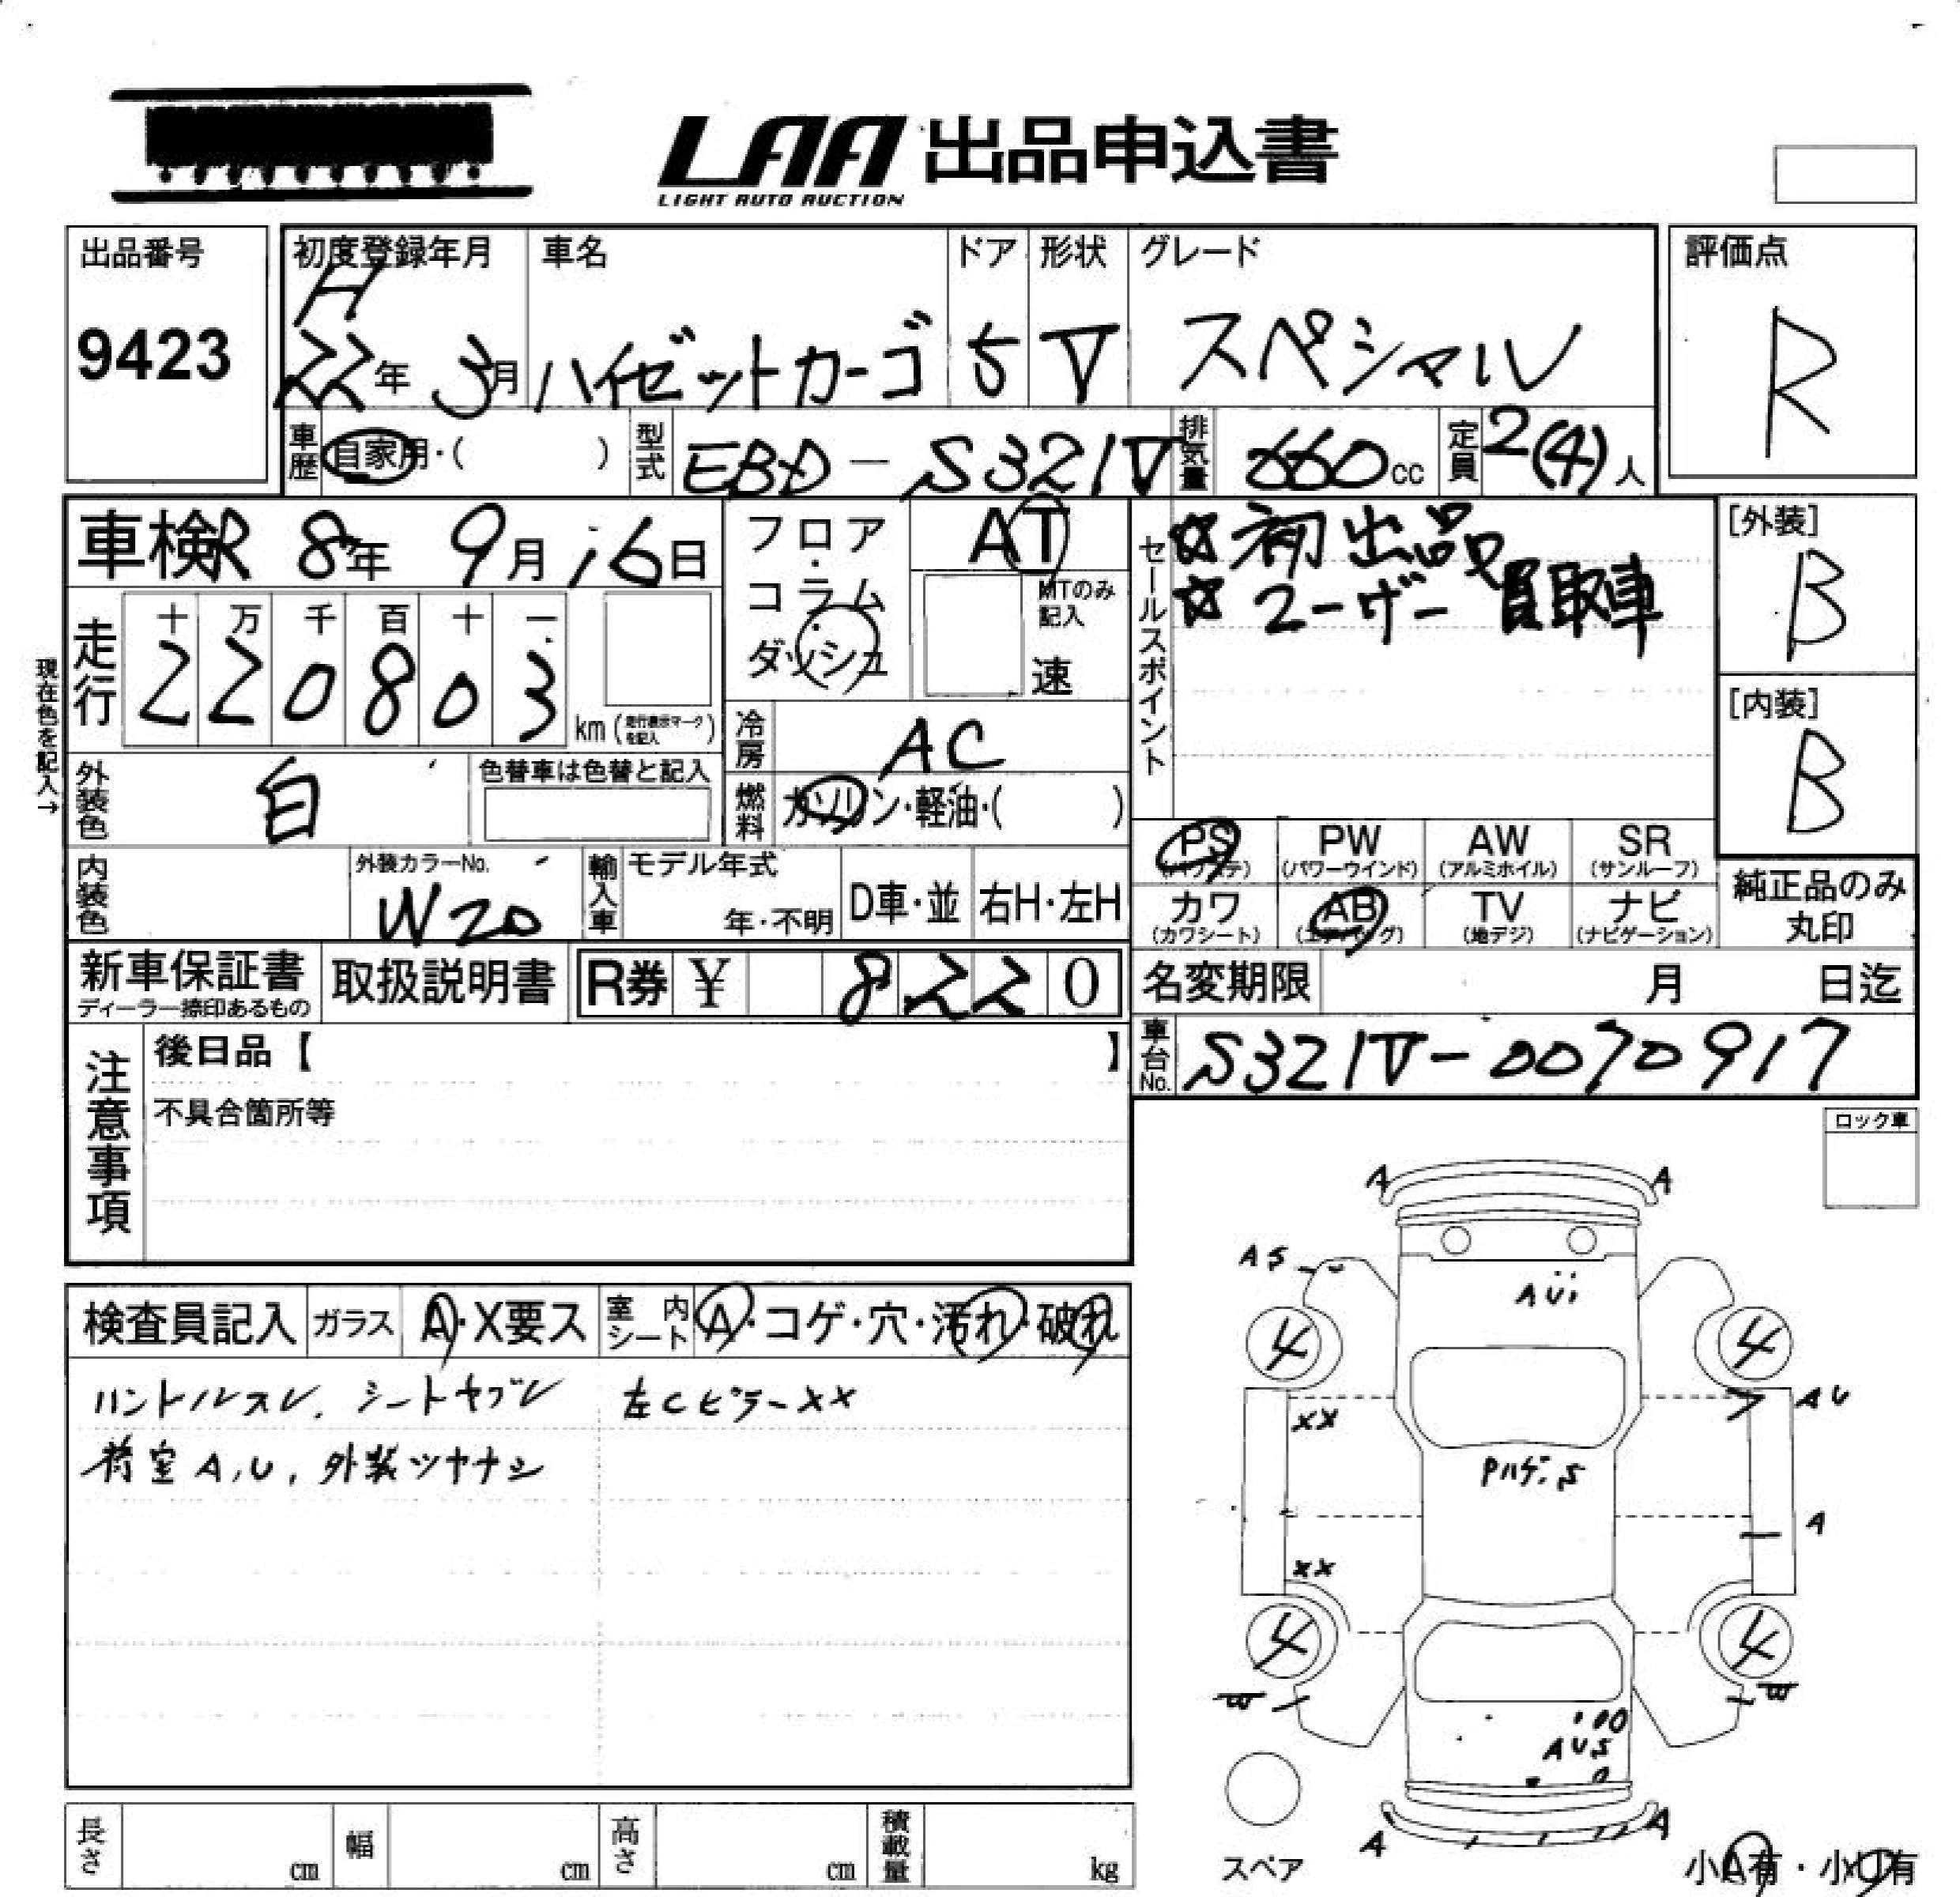 LAA 出品申込書
LIGHT AUTO AUCTION
出品番号
9423
初度登録年月
H
22年 3月
車名
ハイゼットカーゴ
ドア
5
形状
V
グレード
スペシャル
評価点
R
車歴
自家用・( )
型式
EBD-S321V
排気量
660cc
定員
2(4)人
車検 R 8年 9月 16日
フロア・コラム・ダッシュ
AT
MTのみ記入
速
セールスポイント
☆初出品
☆ユーザー買取車
[外装]
B
[内装]
B
現在色を記入→
走行
十 万 千 百 十 一
2 2 0 8 0 3
km (走行表示マークを記入)
冷房
AC
外装色
白
色替車は色替と記入
燃料
ガソリン・軽油・( )
PS (パワステ)
PW (パワーウインド)
AW (アルミホイル)
SR (サンルーフ)
カワ (カワシート)
AB (エアバッグ)
TV (地デジ)
ナビ (ナビゲーション)
純正品のみ丸印
内装色
外装カラーNo.
W20
輸入車
モデル年式
年・不明
D車・並
右H・左H
新車保証書
ディーラー捺印あるもの
取扱説明書
R券 ¥ 8 2 2 0
名変期限 月 日迄
車台No.
S321V-0070917
注意事項
後日品【 】
不具合箇所等
ロック車
検査員記入
ガラス
A・X要ス
室内シート
A・コゲ・穴・汚れ・破れ
ハンドルスレ、シートヤブレ 左CピラーXX
荷室A,U, 外装ツヤナシ
A A
AS
AU
4 4
XX AU
Pハゲ.S
A
XX
4 4
W W
AUS
A A
スペア
小A有・小U有
長さ cm
幅 cm
高さ cm
積載量 kg